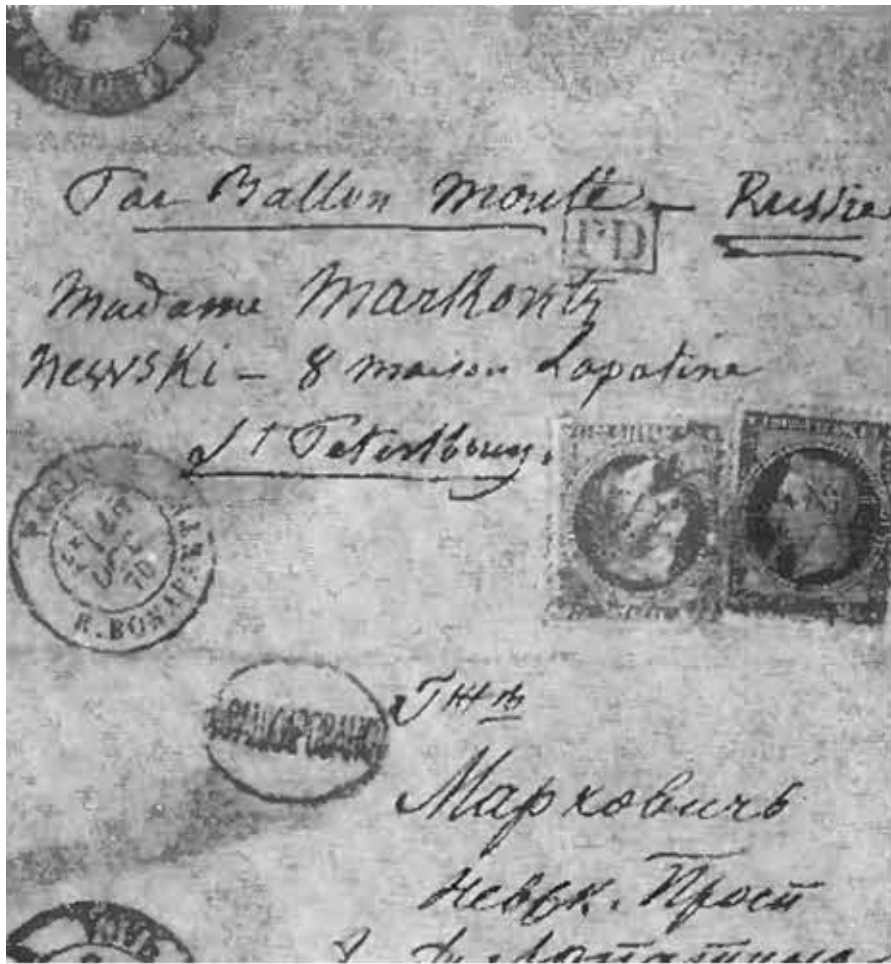 Par Ballon monté – Russie
PD
Madame Markovitz
Newski – 8 maison Lapatine
St Petersbourg.
PARIS
R. BONAPARTE
70
Г-жѣ
Марковичъ
Невск. Просп